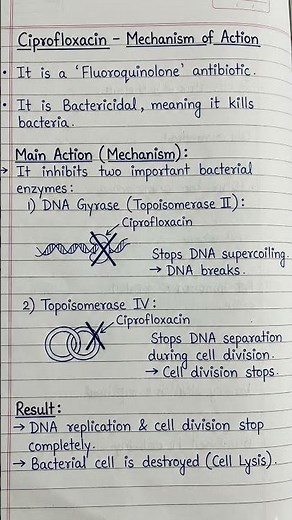 Ciprofloxacin - Mechanism of Action
• It is a 'Fluoroquinolone' antibiotic.
• It is Bactericidal, meaning it kills
bacteria.
Main Action (Mechanism):
→ It inhibits two important bacterial
enzymes:
1) DNA Gyrase (Topoisomerase II):
Ciprofloxacin
Stops DNA supercoiling.
→ DNA breaks.
2) Topoisomerase IV:
Ciprofloxacin
Stops DNA separation
during cell division.
→ Cell division stops.
Result:
→ DNA replication & cell division stop
completely.
→ Bacterial cell is destroyed (Cell Lysis).